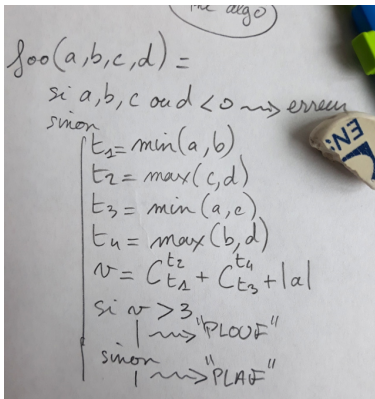 the algo
foo(a,b,c,d) =
si a,b,c ou d < 0 ⇝ erreur
sinon
t₁ = min(a,b)
t₂ = max(c,d)
t₃ = min(a,c)
t₄ = max(b,d)
v = C_{t₁}^{t₂} + C_{t₃}^{t₄} + |a|
si v > 3
⇝ "PLOUF"
sinon
⇝ "PLAF"
EN: